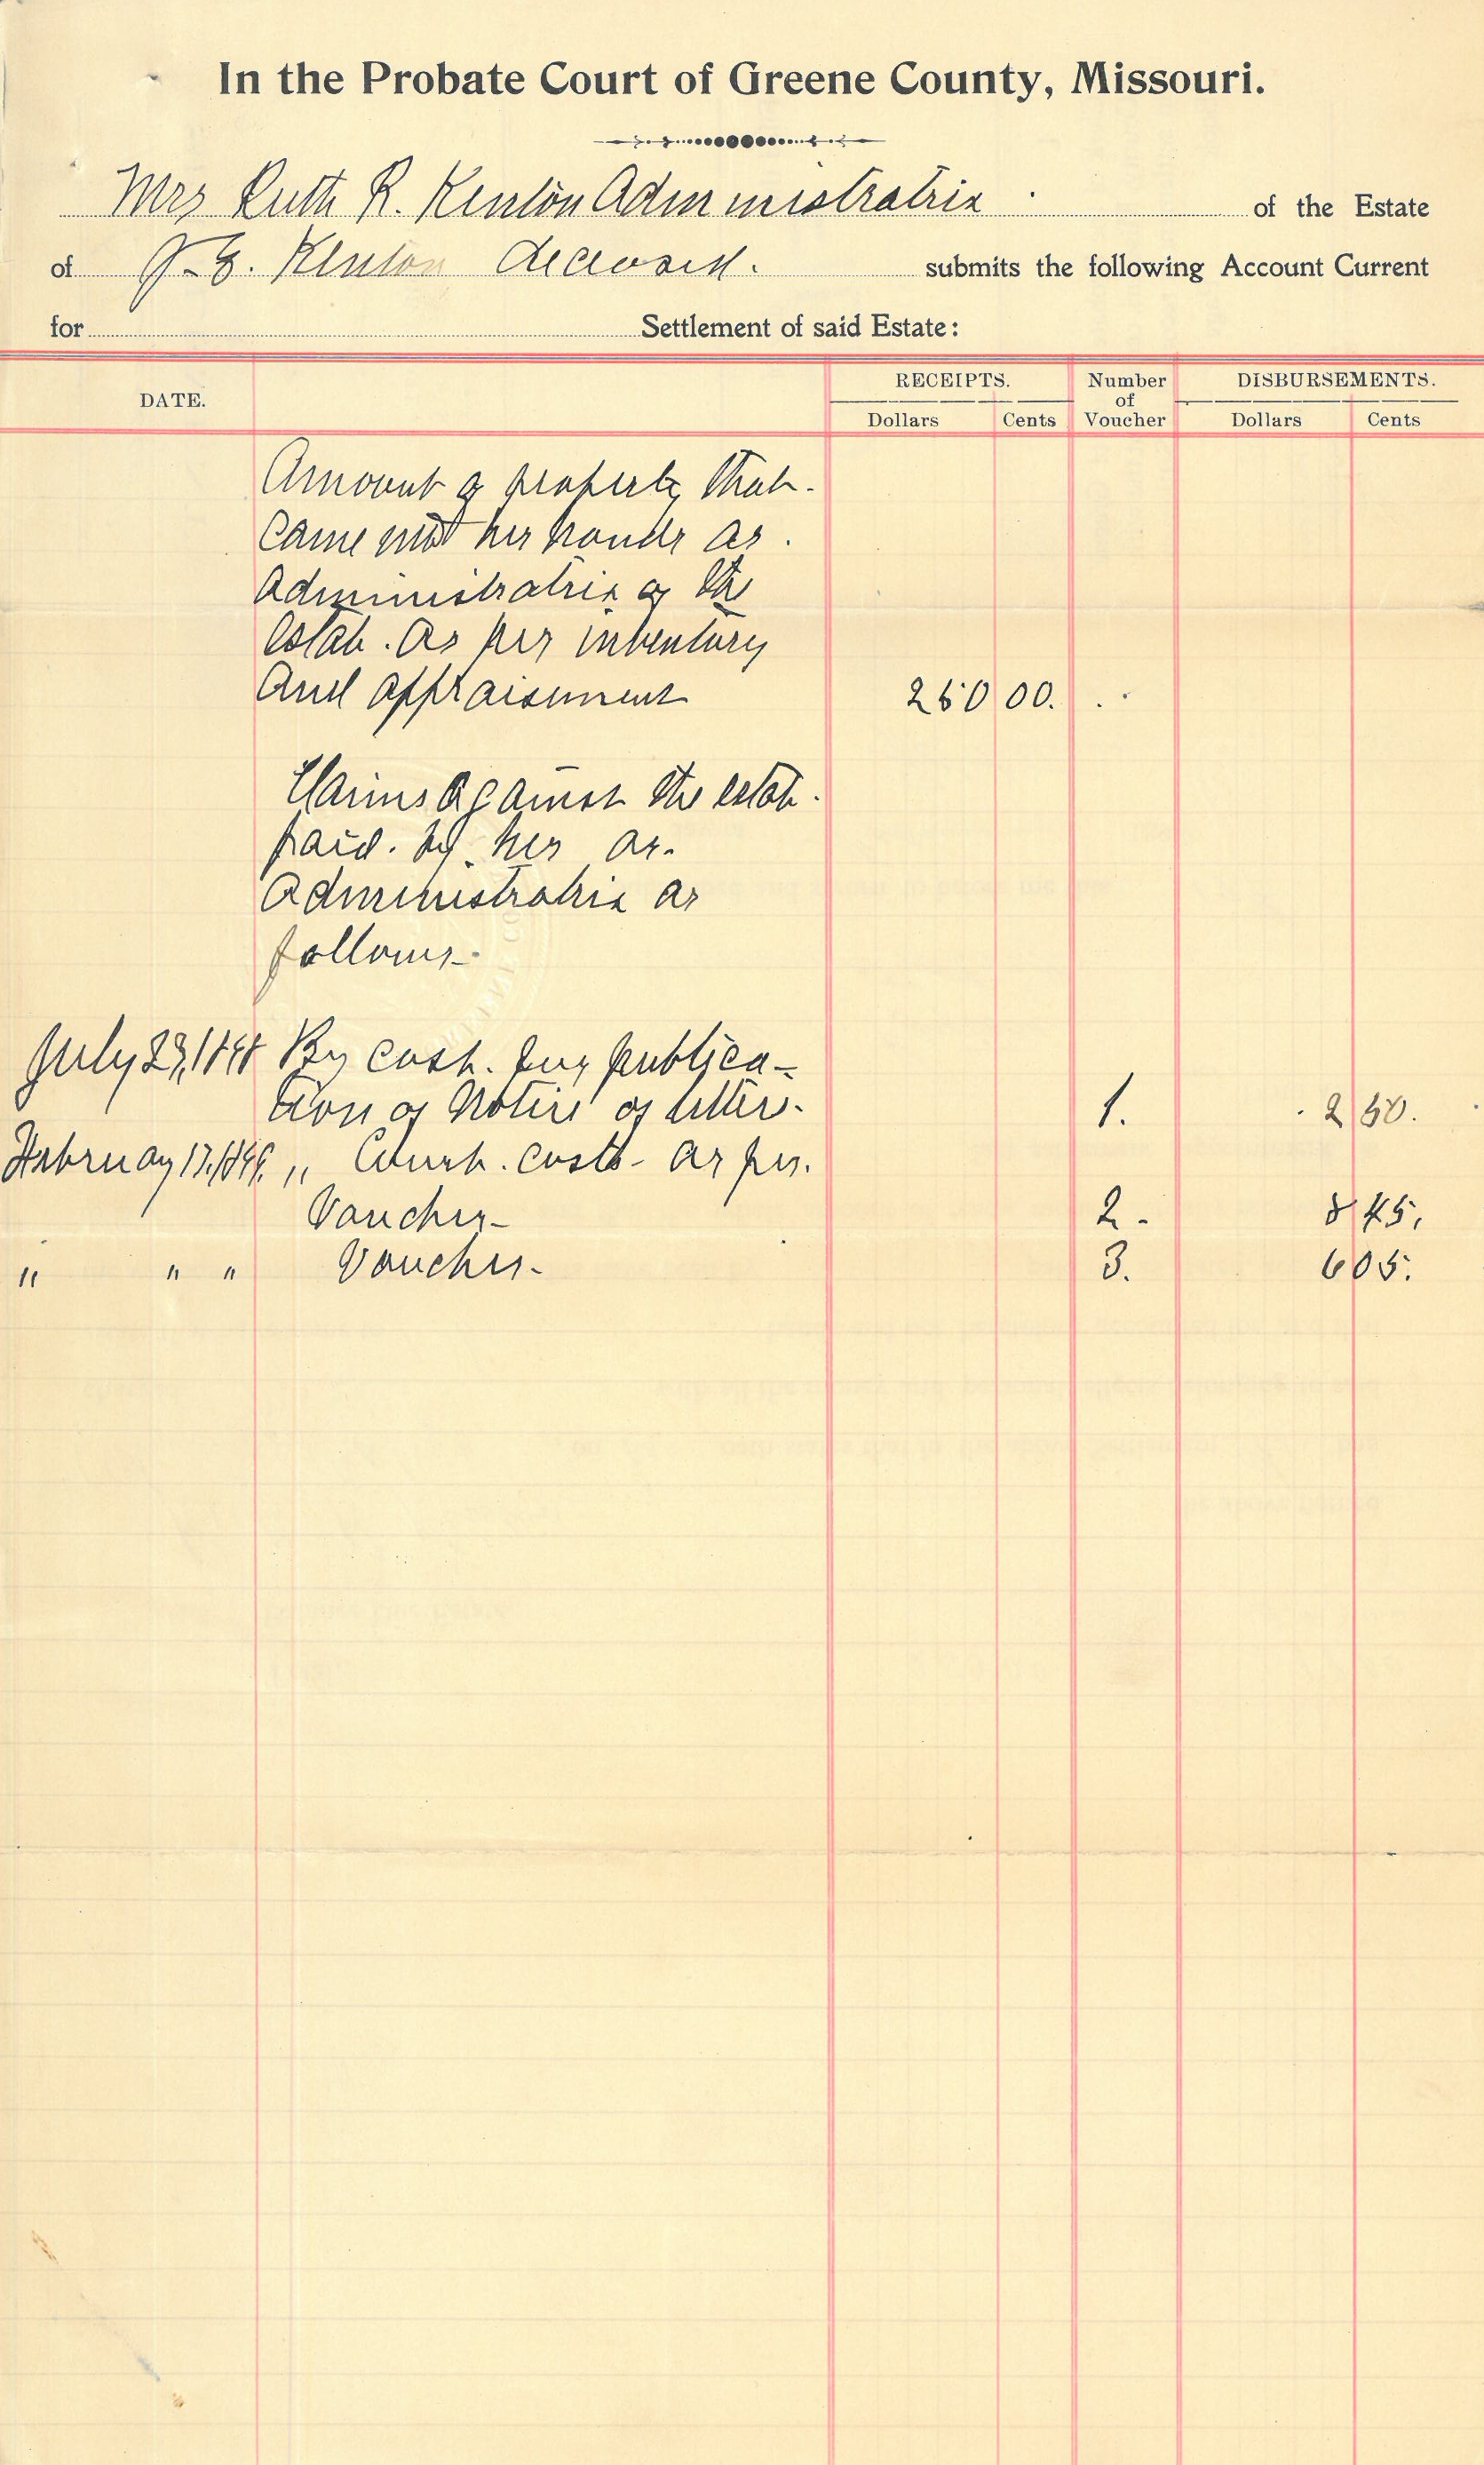 In the Probate Court of Greene County, Missouri.
Mrs Ruth R. Kenton Administratrix of the Estate
of J. E. Kenton deceased. submits the following Account Current
for Settlement of said Estate:
DATE. RECEIPTS. Number of Voucher DISBURSEMENTS.
Dollars Cents Dollars Cents
Amount of property that
came into her hands as
Administratrix of the
Estate. As per inventory
And appraisement 250 00.
Claims against the estate
paid. by her as
Administratrix as
follows-
July 23, 1898 By cash. for publica-
tion of Notice of letters. 1. 2 50.
February 17, 1899. " Court. costs - as per.
Voucher- 2- 8 45.
" " " Voucher- 3. 6 05.